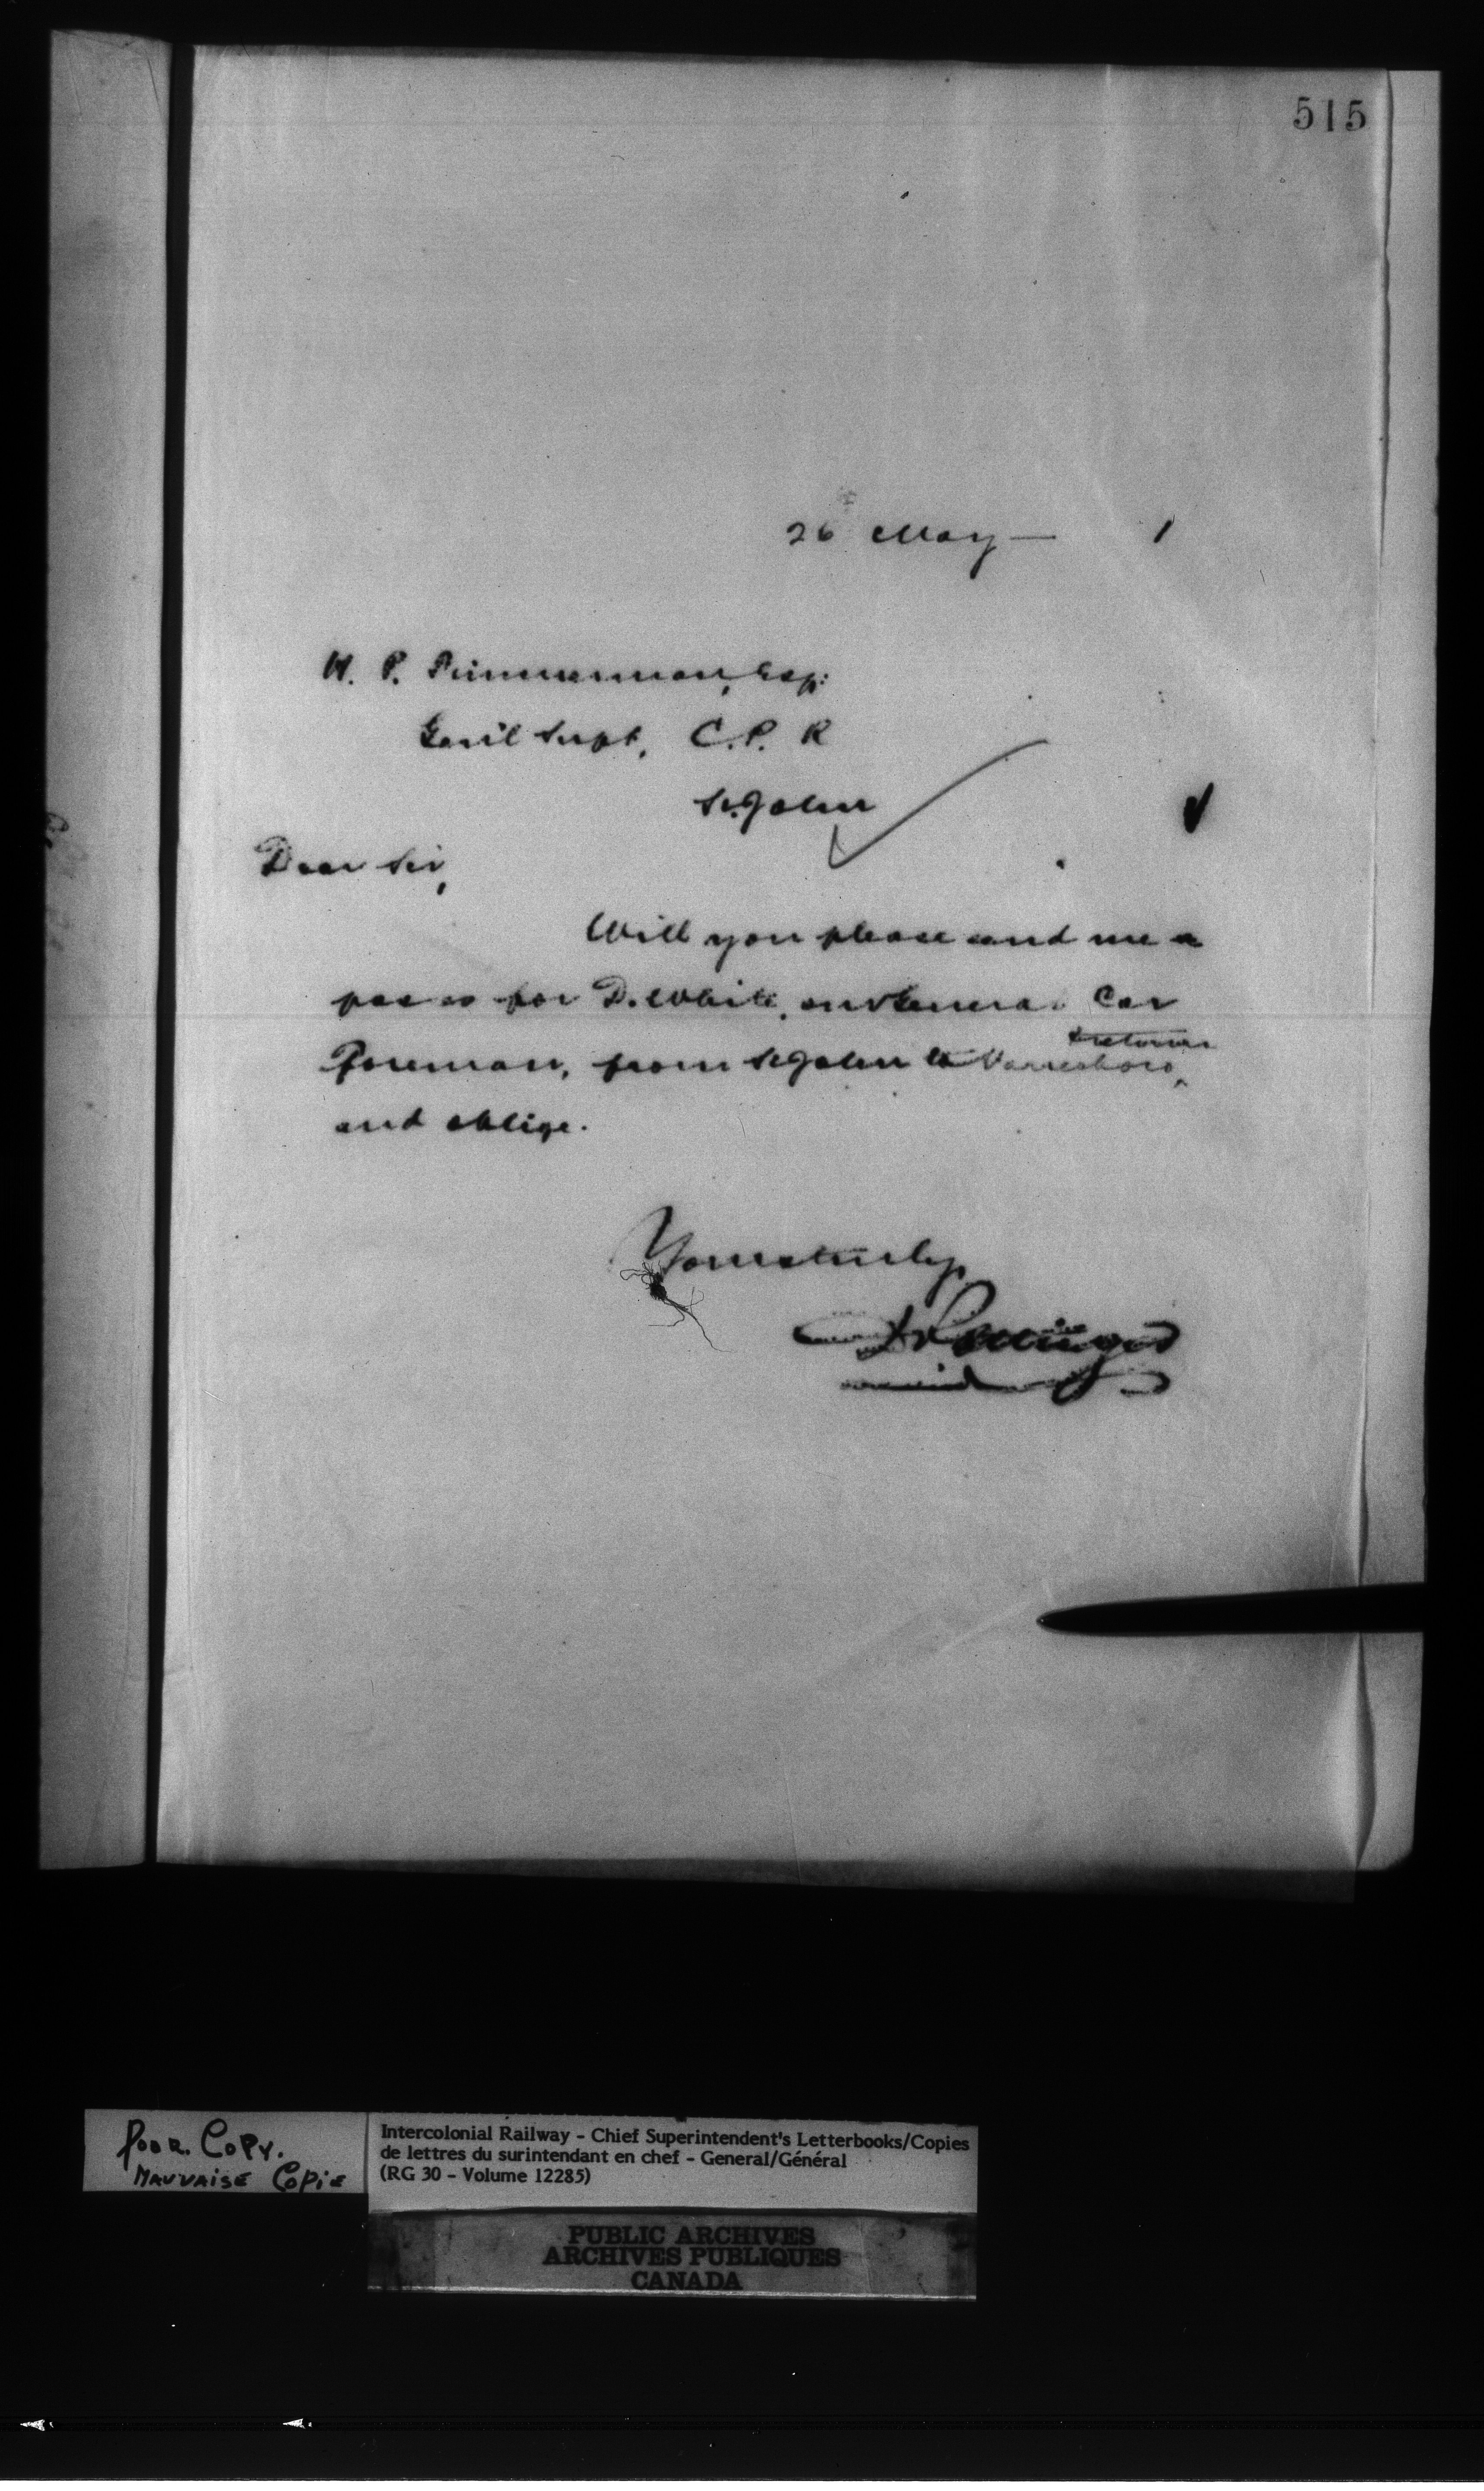 515
26 May — 1
H. P. Timmerman, Esq:
Gen'l Supt, C.P. R
St. John
Dear Sir,
Will you please send me a
pass for D. White, our General Car
Foreman, from St John to Vanceboro, & return
and oblige.
Yours truly
D Pottinger
Poor Copy.
Mauvaise Copie
Intercolonial Railway - Chief Superintendent's Letterbooks/Copies
de lettres du surintendant en chef - General/Général
(RG 30 - Volume 12285)
PUBLIC ARCHIVES
ARCHIVES PUBLIQUES
CANADA